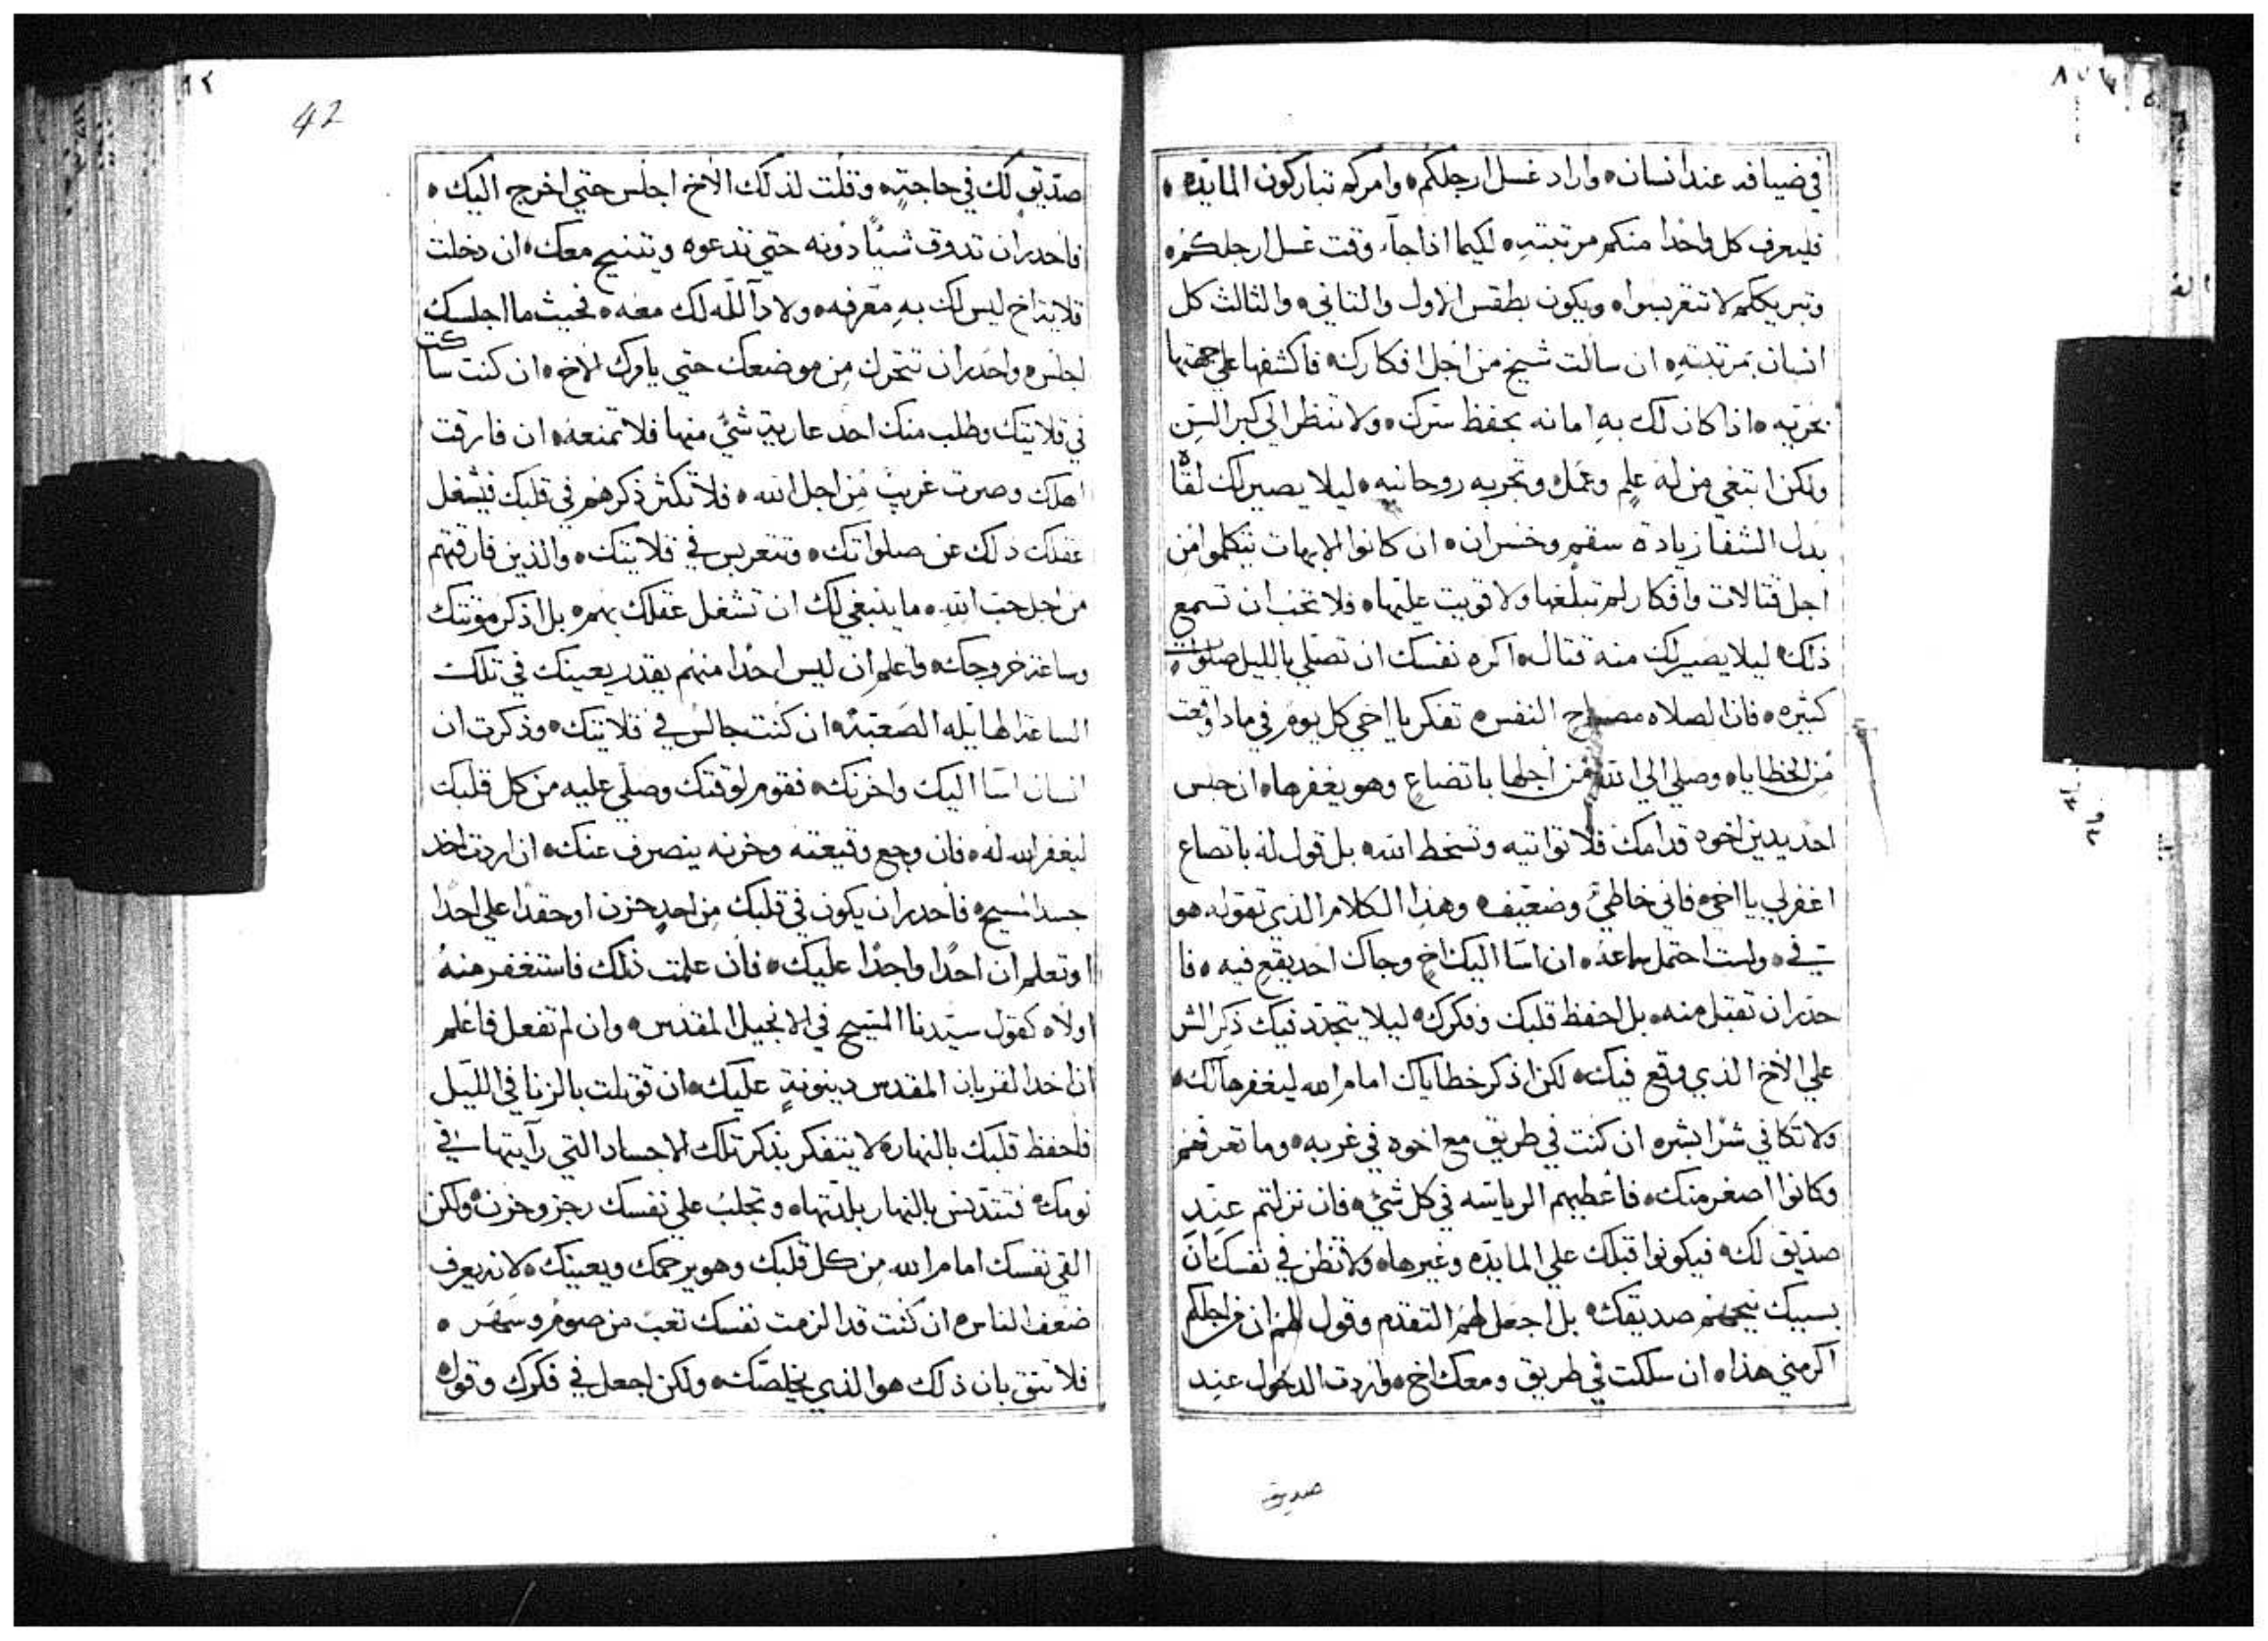 في ضيافه عند انسان ه واراد غسل ارجلكم ه وامركم تباركون المايده ه
فليعرف كل واحدا منكم مرتبته ه لكيما اذا جآء وقت غسل ارجلكم ه
وتبريككم لا تتقربسوا ه ويكون بطقس الاول والتاني ه والثالث كل
انسان بمرتبته ه ان سالت شيخ من اجل افكارك ه فاكشفها علي جهتها
بحريه ه اذا كان لك به امانه بحفظ سترك ه ولا تنظر الي كبر السن
ولكن ابتغي من له علم وعمل ه وتجربه روحانيه ه ليلا يصير لك لقاه
بدل الشفا زيادة سقم وخسران ه ان كانوا الابهات تتكلموا من
اجل قتالات وافكار لم تبلغها ولا قويت عليها ه فلا تحب ان تسمع
ذلك ه ليلا يصير لك منه قتال ه اكره نفسك ان تصلي بالليل صلوات
كثيره ه فان الصلاه مصباح النفس ه تفكر يا اخي كل يوم في ماذا وقعت
من الخطايا ه وصلي الي الله من اجلها باتضاع وهو يغفرها ه ان جلس
احد يدين اخوه قدامك فلا تواتيه وتسخط الله ه بل قول له باتضاع
اغفر لي يا اخي ه فاني خاطئ وضعيف ه وهذا الكلام الذي تقوله هو
في ه ولست احتمل سماعه ه ان اسا اليك اخ وجاك احد يقع فيه ه فا
حذر ان تقبل منه ه بل احفظ قلبك وفكرك ه ليلا يتجدد فيك ذكر الشر
علي الاخ الذي وقع فيك ه لكن اذكر خطاياك امام الله ليغفرها لك ه
ولا تكافي شر ابشر ه ان كنت في طريق مع اخوه في غربه ه وما تعرفهم
وكانوا اصغر منك ه فاعطيهم الرياسه في كل شئ ه فان نزلتم عند
صديق لك ه فيكونوا قبلك علي المايده وغيرها ه ولا تظن في نفسك ان
بسببك نيحهم صديقك ه بل اجعل لهم التقدم وقول لهم ان من اجلكم
اكرمني هذا ه ان سلكت في طريق ومعك اخ ه واردت الدخول عند
صديق
42
صديق لك في حاجته ه وقلت لذلك الاخ اجلس حتي اخرج اليك ه
فاحدر ان تدوق شيًا دونه حتي تدعوه ويتنيح معك ه ان دخلت
قلاية اخ ليس لك به معرفه ه ولا دآلله لك معه ه فحيث ما اجلسك
اجلس ه واحدر ان تتحرك من موضعك حتي يامرك الاخ ه ان كنت ساكت
في قلايتك وطلب منك احد عارية شئ منها فلا تمنعه ه ان فارقت
اهلك وصرت غريب من اجل الله ه فلا تكثر ذكرهم في قلبك فيشغل
عقلك ذلك عن صلواتك ه وتتعربس في قلايتك ه والذين فارقتهم
من اجل حب الله ه ما ينبغي لك ان تشغل عقلك بهم ه بل اذكر موتتك
وساعة خروجك ه واعلم ان ليس احدا منهم يقدر يعينك في تلك
الساعة الهايله الصعبة ه ان كنت جالس في قلايتك ه وذكرت ان
انسان اسا اليك واحزنك ه فقوم لوقتك وصلي عليه من كل قلبك
ليغفر الله له ه فان وجع وقيعته وحزنه ينصرف عنك ه ان اردت اخد
جسد المسيح ه فاحدر ان يكون في قلبك من احد حزن او حقدا علي احدا
او تعلم ان احدًا واجدًا عليك ه فان علمت ذلك فاستغفر منه
اولًا ه كقول سيدنا المسيح في الانجيل المقدس ه وان لم تفعل فاعلم
ان اخد القربان المقدس دينونةٍ عليك ه ان قوتلت بالزنا في الليل
فاحفظ قلبك بالنهار ه لا يتفكر بذكر تلك الاجساد التي رآيتها في
نومك ه فتتدنس بالنهار بلدتها ه وتجلب علي نفسك رجز وحزن ه ولكن
القي نفسك امام الله من كل قلبك وهو يرحمك ويعينك ه لانه يعرف
ضعف الناس ه ان كنت قد الزمت نفسك تعب من صوم وسهر ه
فلا تتق بان ذلك هو الذي يخلصك ه ولكن اجعل في فكرك وقول ه